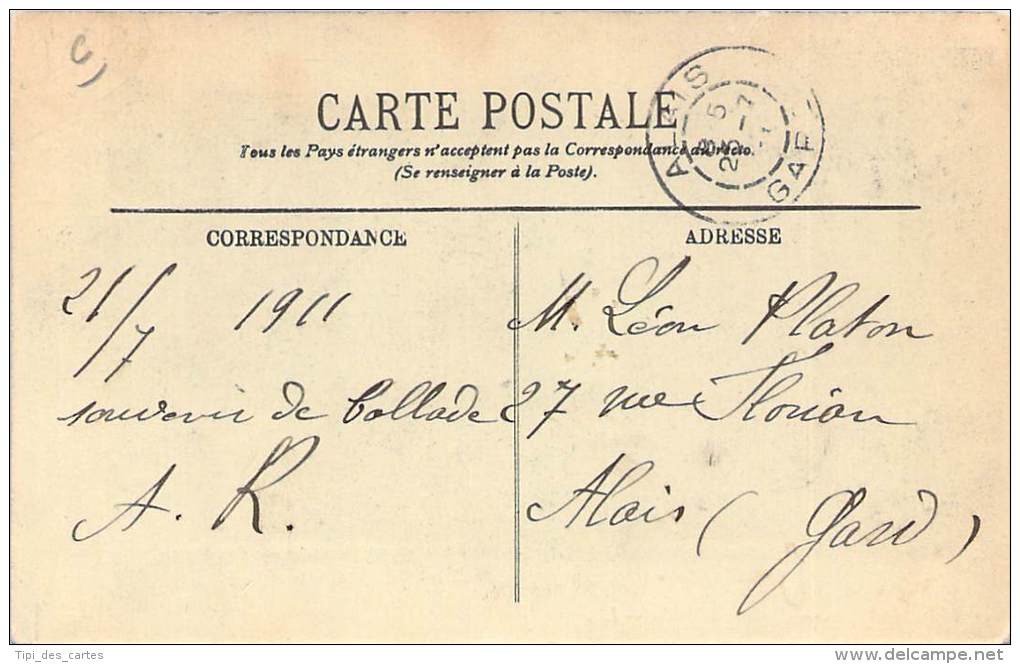 C)
CARTE POSTALE
Tous les Pays étrangers n'acceptent pas la Correspondance au recto.
(Se renseigner à la Poste).
ALAIS
8 5
25 - 7
GARD
CORRESPONDANCE
21/7 1911
souvenir de ballade
A. R.
ADRESSE
M. Léon Platon
27 rue Florian
Alais (Gard)
Tipi_des_cartes
www.delcampe.net